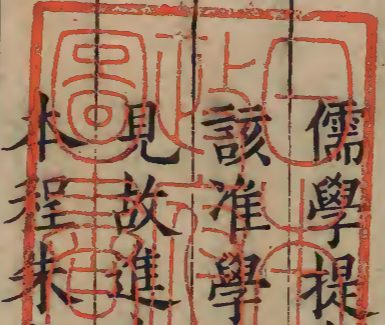 儒學提
該准學
見故進
本程朱